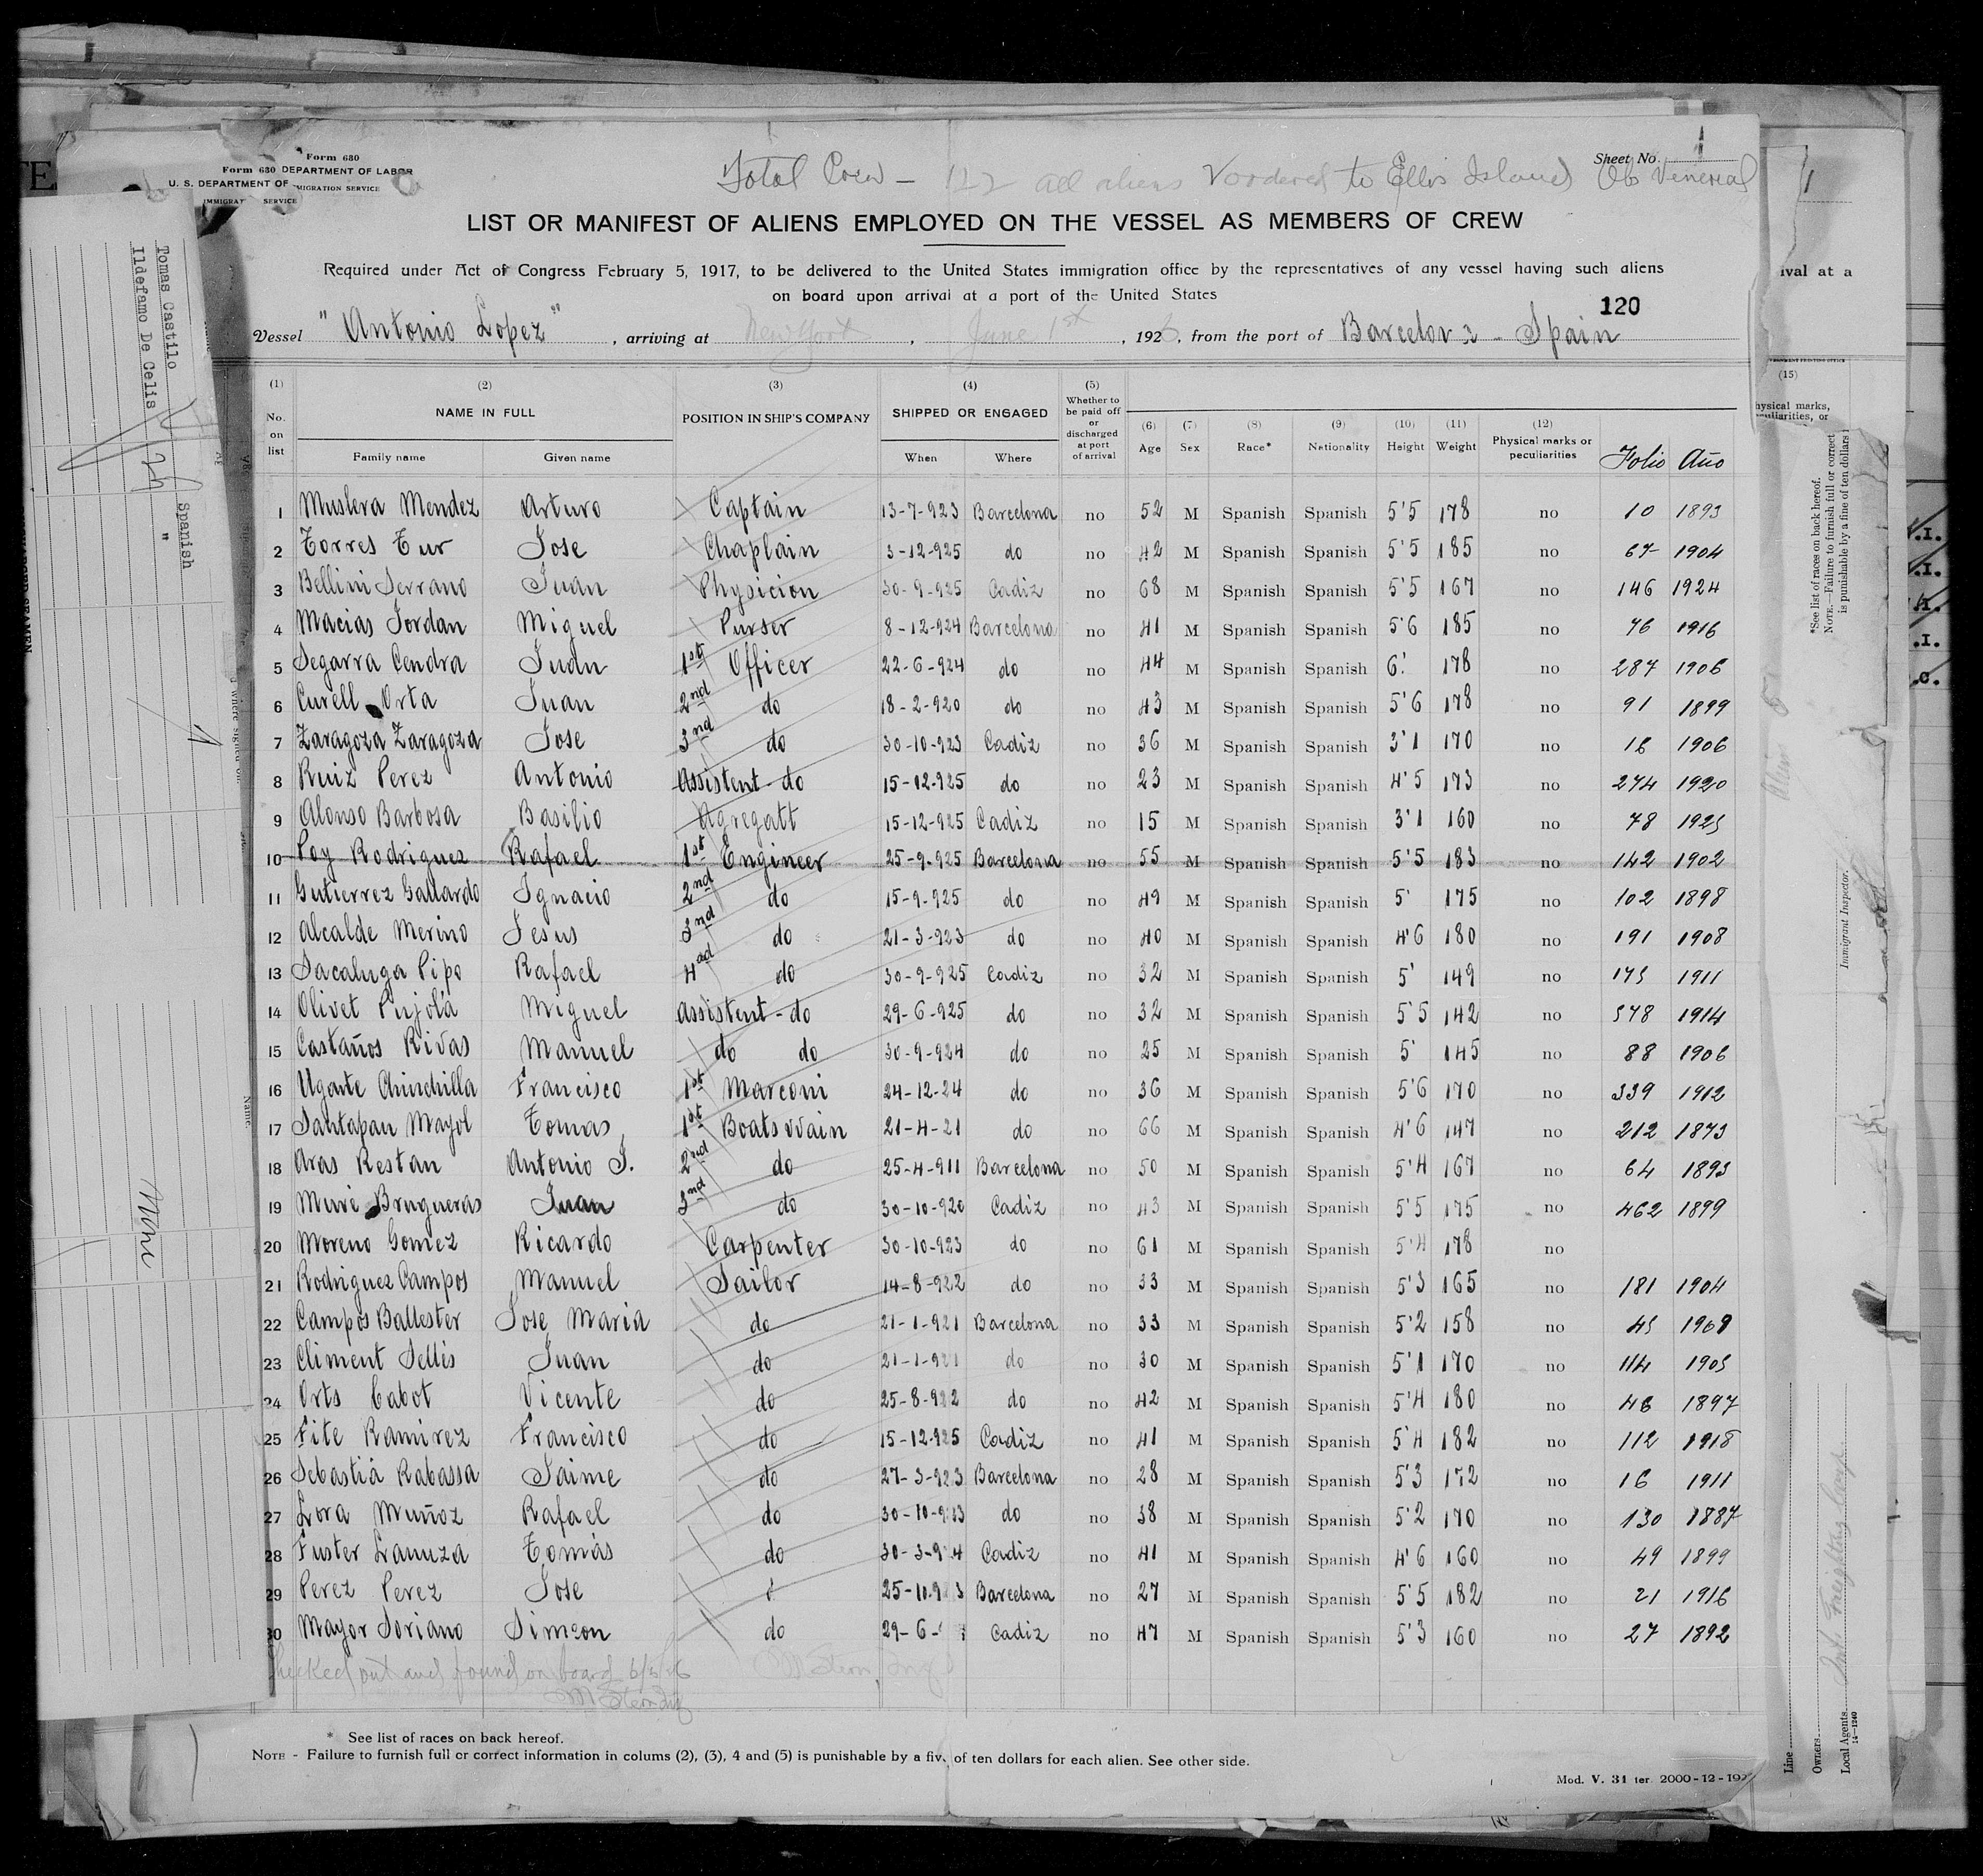 Form 630
Form 630 DEPARTMENT OF LABOR
U. S. DEPARTMENT OF
IMMIGRATION SERVICE
Total Crew - 122 all aliens ordered to Ellis Island Ob Venereal
Sheet No. 1
LIST OR MANIFEST OF ALIENS EMPLOYED ON THE VESSEL AS MEMBERS OF CREW
Required under Act of Congress February 5, 1917, to be delivered to the United States immigration office by the representatives of any vessel having such aliens
on board upon arrival at a port of the United States
120
Vessel "Antonio Lopez", arriving at New York, June 1st, 1926, from the port of Barcelona - Spain
(1) (2) (3) (4) (5)
No. on list NAME IN FULL POSITION IN SHIP'S COMPANY SHIPPED OR ENGAGED Whether to be paid off or discharged at port of arrival
(6) (7) (8) (9) (10) (11) (12)
Family name Given name When Where Age Sex Race* Nationality Height Weight Physical marks or peculiarities Folio Año
1 Muslera Mendez Arturo Captain 13-7-923 Barcelona no 52 M Spanish Spanish 5'5 178 no 10 1893
2 Torres Tur Jose Chaplain 3-12-925 do no 42 M Spanish Spanish 5'5 185 no 67 1904
3 Bellini Serrano Juan Physicion 30-9-925 Cadiz no 68 M Spanish Spanish 5'5 167 no 146 1924
4 Macias Jordan Miguel Purser 8-12-924 Barcelona no 41 M Spanish Spanish 5'6 185 no 76 1916
5 Segarra Cendra Juan 1st Officer 22-6-924 do no 44 M Spanish Spanish 6' 178 no 287 1906
6 Curell Orta Juan 2nd do 18-2-920 do no 43 M Spanish Spanish 5'6 178 no 91 1899
7 Zaragoza Zaragoza Jose 3nd do 30-10-923 Cadiz no 36 M Spanish Spanish 3'1 170 no 16 1906
8 Ruiz Perez Antonio Assistent-do 15-12-925 do no 23 M Spanish Spanish 4'5 173 no 274 1920
9 Alonso Barbosa Basilio Agregatt 15-12-925 Cadiz no 15 M Spanish Spanish 3'1 160 no 78 1925
10 Poy Rodriguez Rafael 1st Engineer 25-9-925 Barcelona no 55 M Spanish Spanish 5'5 183 no 142 1902
11 Gutierrez Gallardo Ignacio 2nd do 15-9-925 do no 49 M Spanish Spanish 5' 175 no 102 1898
12 Alcalde Merino Jesus 3nd do 21-3-923 do no 40 M Spanish Spanish 4'6 180 no 191 1908
13 Sacaluga Pipo Rafael 4ad do 30-9-925 Cadiz no 32 M Spanish Spanish 5' 149 no 175 1911
14 Olivet Pujolá Miguel Assistent-do 29-6-925 do no 32 M Spanish Spanish 5'5 142 no 378 1914
15 Castaños Rivas Manuel do do 30-9-924 do no 25 M Spanish Spanish 5' 145 no 88 1906
16 Ugarte Chinchilla Francisco 1st Marconi 24-12-24 do no 36 M Spanish Spanish 5'6 170 no 339 1912
17 Santapau Mayol Tomas 1st Boatswain 21-4-21 do no 66 M Spanish Spanish 4'6 147 no 212 1873
18 Aras Restan Antonio J. 2nd do 25-4-911 Barcelona no 50 M Spanish Spanish 5'4 167 no 64 1893
19 Muré Brugueras Juan 3nd do 30-10-920 Cadiz no 43 M Spanish Spanish 5'5 175 no 462 1899
20 Moreno Gomez Ricardo Carpenter 30-10-923 do no 61 M Spanish Spanish 5'4 178 no
21 Rodriguez Campos Manuel Sailor 14-8-922 do no 33 M Spanish Spanish 5'3 165 no 181 1904
22 Campos Ballester Jose Maria do 21-1-921 Barcelona no 33 M Spanish Spanish 5'2 158 no 45 1908
23 Climent Sellés Juan do 21-1-921 do no 30 M Spanish Spanish 5'1 170 no 114 1905
24 Orts Cabot Vicente do 25-8-922 do no 42 M Spanish Spanish 5'4 180 no 46 1897
25 Fite Ramirez Francisco do 15-12-925 Cadiz no 41 M Spanish Spanish 5'4 182 no 112 1918
26 Sebastiá Rabassa Jaime do 27-3-923 Barcelona no 28 M Spanish Spanish 5'3 172 no 16 1911
27 Lora Muñoz Rafael do 30-10-923 do no 38 M Spanish Spanish 5'2 170 no 130 1887
28 Fuster Lanuza Tomás do 30-3-924 Cadiz no 41 M Spanish Spanish 4'6 160 no 49 1899
29 Perez Perez Jose 25-10-923 Barcelona no 27 M Spanish Spanish 5'5 182 no 21 1916
30 Mayor Soriano Simeon do 29-6- Cadiz no 47 M Spanish Spanish 5'3 160 no 27 1892
Checked out and found on board 6/3/26
* See list of races on back hereof.
NOTE - Failure to furnish full or correct information in colums (2), (3), 4 and (5) is punishable by a five of ten dollars for each alien. See other side.
Mod. V. 31 ter. 2000-12-192
Tomas Castilo
Ildefamo De Celis
Spanish
"
Name
ival at a
(15)
hysical marks,
*See list of races on back hereof.
NOTE.—Failure to furnish full or correct
is punishable by a fine of ten dollars
Immigrant Inspector.
Line
Owners
Local Agents
14-1240